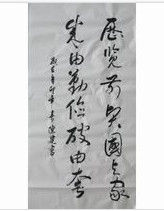 歷览前贤國与家
成由勤俭破由奢